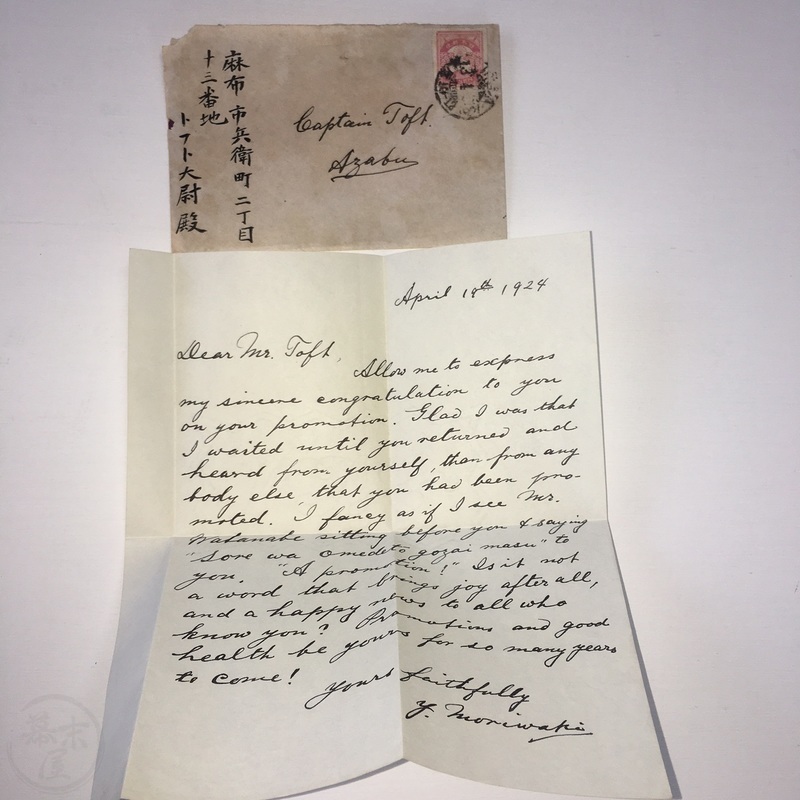 麻布市兵衛町二丁目
十三番地
トフト大尉殿
Captain Toft.
Azabu
April 19th 1924
Dear Mr. Toft,
Allow me to express
my sincere congratulation to you
on your promotion. Glad I was that
I waited until you returned and
heard from yourself, than from any
body else, that you had been pro-
moted. I fancy as if I see Mr.
Watanabe sitting before you & saying
"Sore wa omedeto gozai masu" to
you. "A promotion!" Is it not
a word that brings joy after all,
and a happy news to all who
know you? Promotions and good
health be yours for so many years
to come!
yours faithfully
Y. Moriwaki
幕末屋